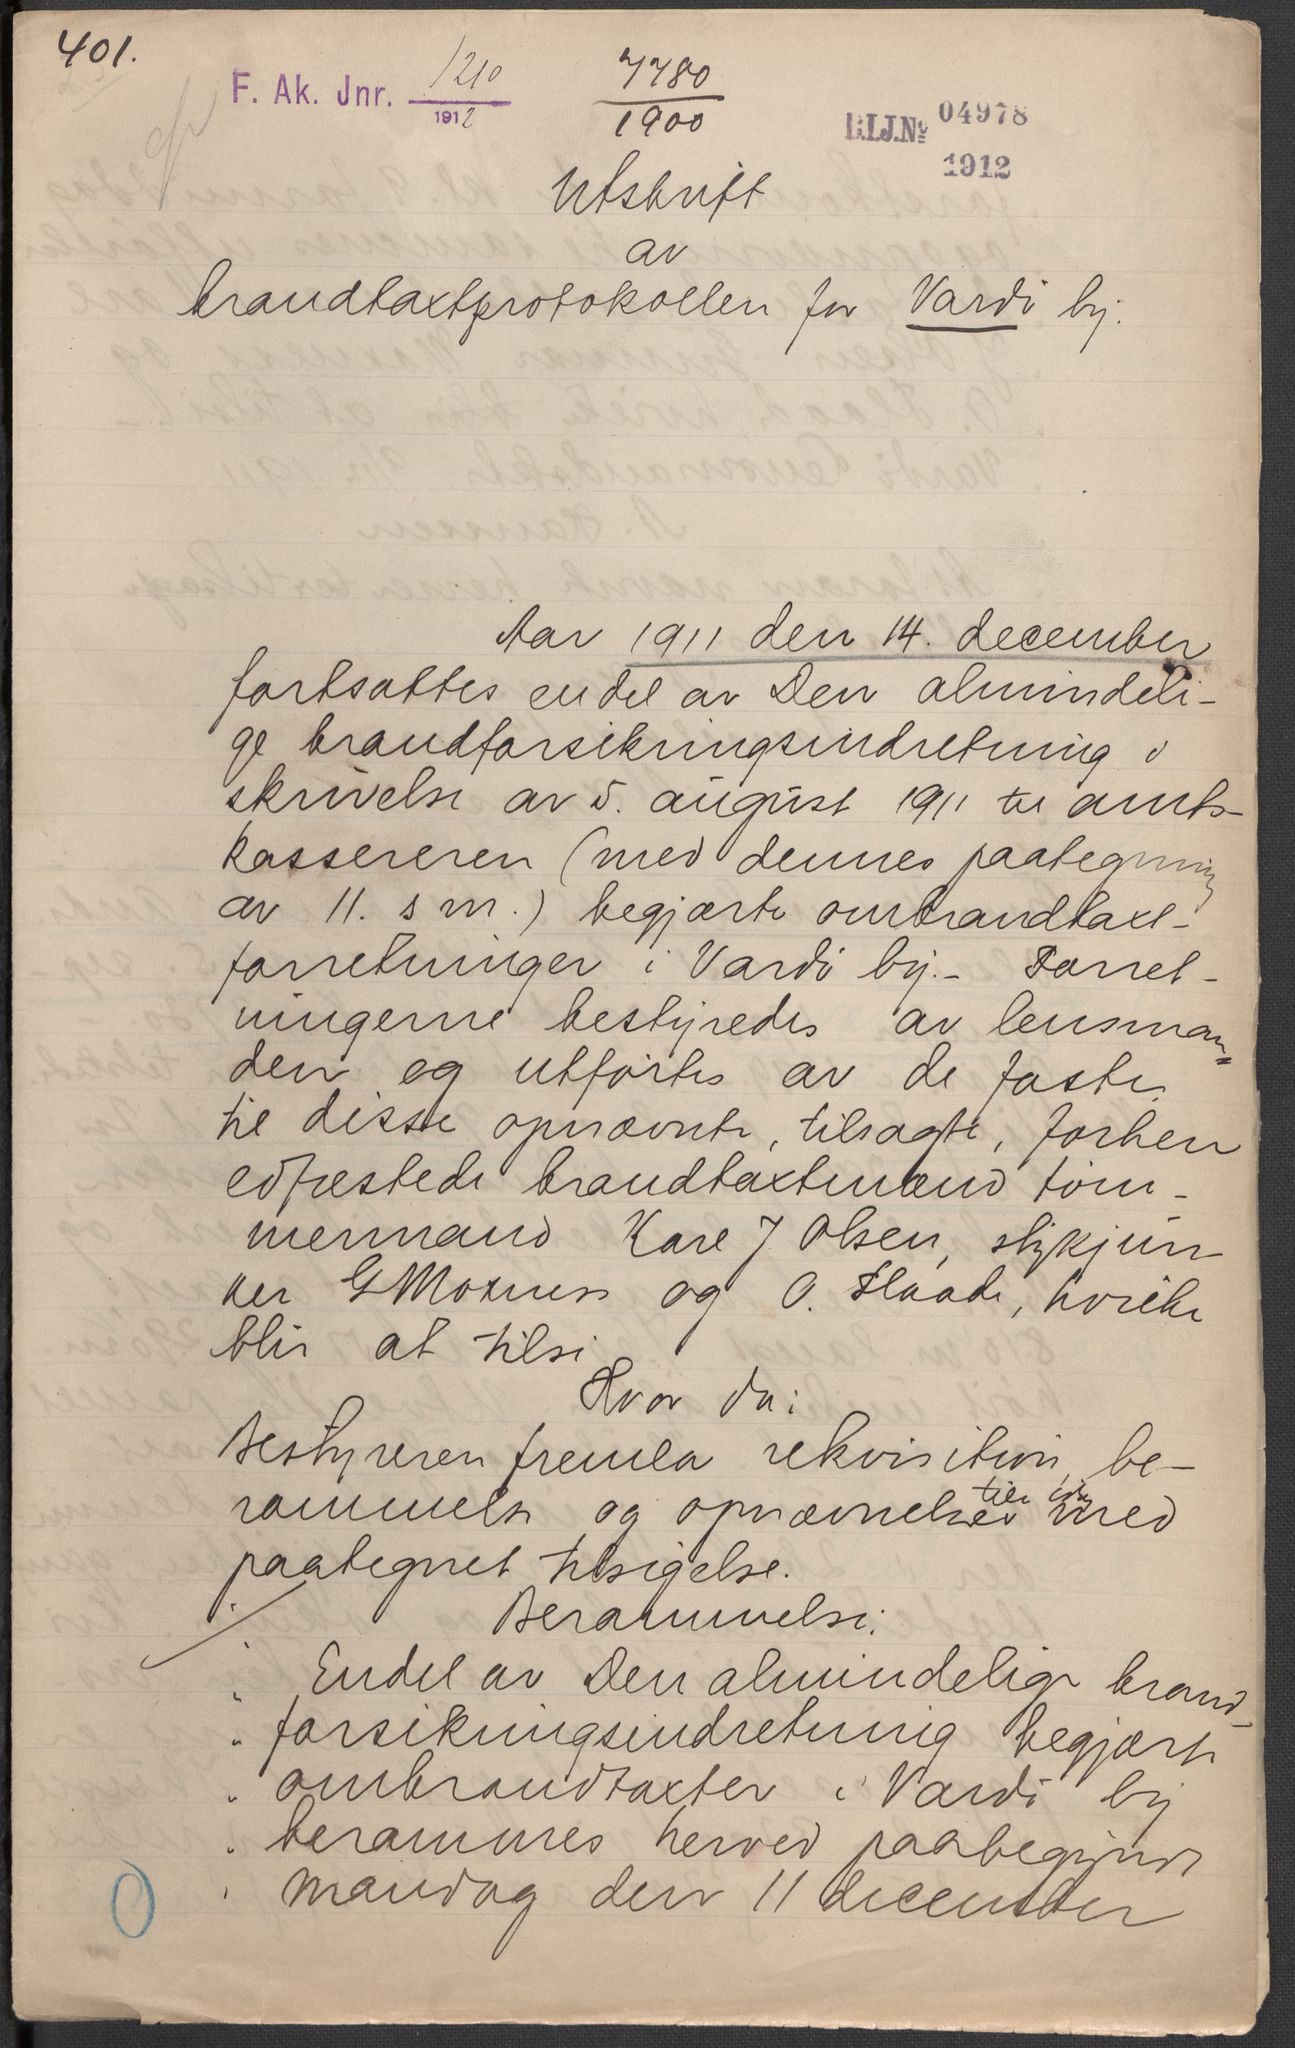 401.
F. Ak. Jnr. 1210
1912
7780
1900
B.I.J.Nº 04978
1912
Utskrift
av
brandtaxtprotokollen for Vardö by.
Aar 1911 den 14. december
fortsattes endel av Den almindeli-
ge brandforsikringsindretning i
skrivelse av 5. august 1911 til amts-
kassereren (med dennes paategning
av 11. s m.) begjærte ombrandtaxt-
forretninger i Vardö by.- Forret-
ningerne bestyredes av lensman-
den og utførtes av de faste
til disse opnævnte, tilsagte, forhen
edfæstede brandtaxtmænd töm-
mermand Kare J Olsen, stykjun-
ker G Moxness og O. Flaade, hvilke
blir at tilsi
Hvor da:
Bestyreren fremla rekvisition, be-
rammelse og opnævnelse med
paategnet tilsigelse.
Berammelse:
" Endel av Den almindelige brand-
" forsikringsindretning begjærte
" ombrandtaxter i Vardö by
" berammes herved paabegyndt
" mandag den 11 december